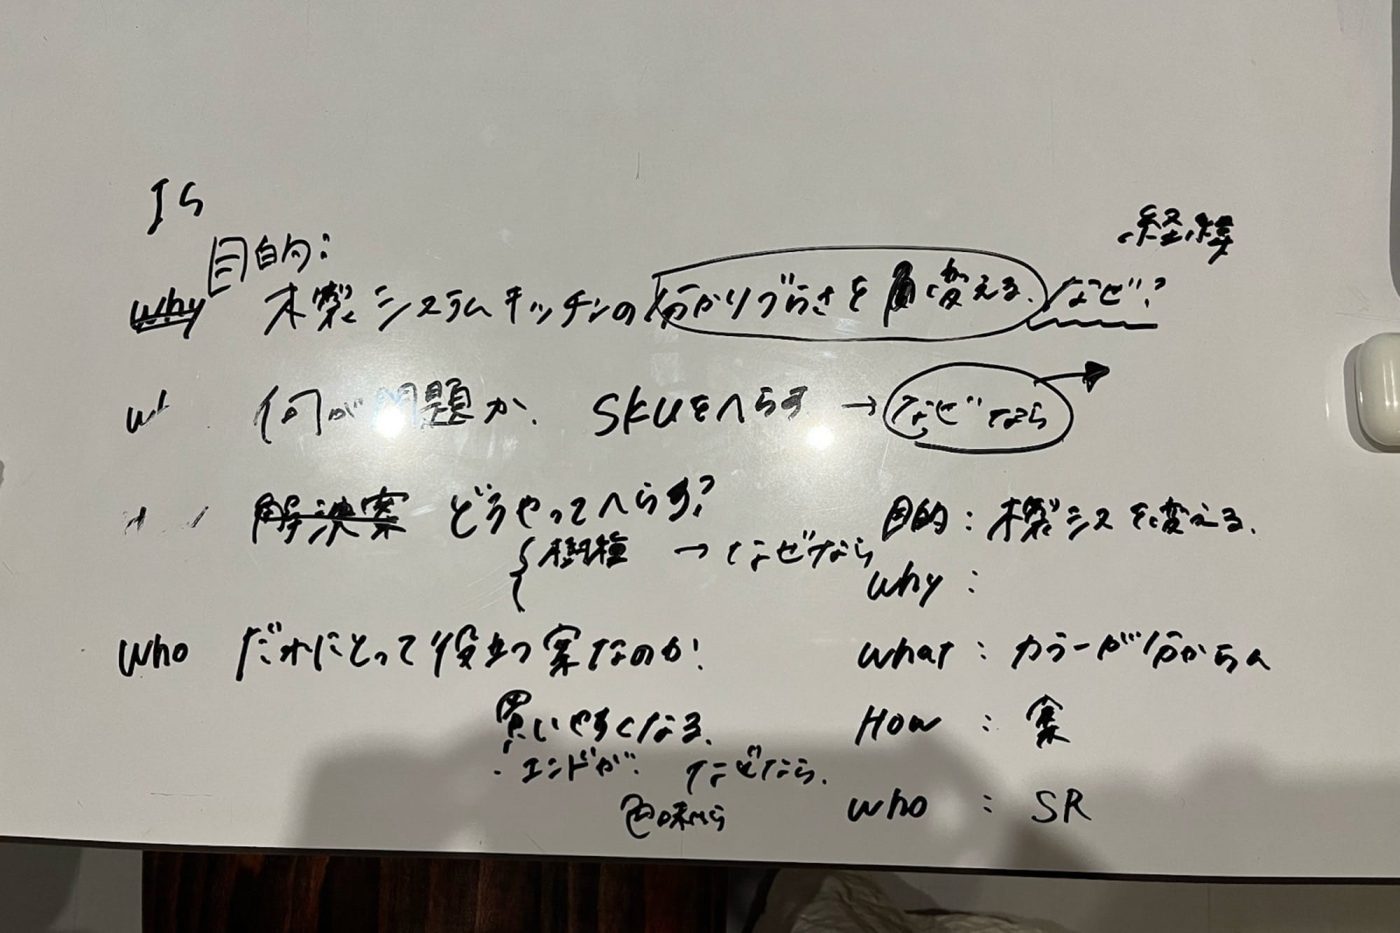 IS
目的:
経緯
why 木製システムキッチンの分かりづらさを変える。なぜ?
何が問題か、SKUをへらす → なぜなら
解決案 どうやってへらす?
樹種 → なぜなら
who だれにとって役立つ案なのか?
買いやすくなる。
・エンドが なぜなら、
色味から
目的:木製シスを変える。
why:
what:カラーが分からん
How:案
who:SR